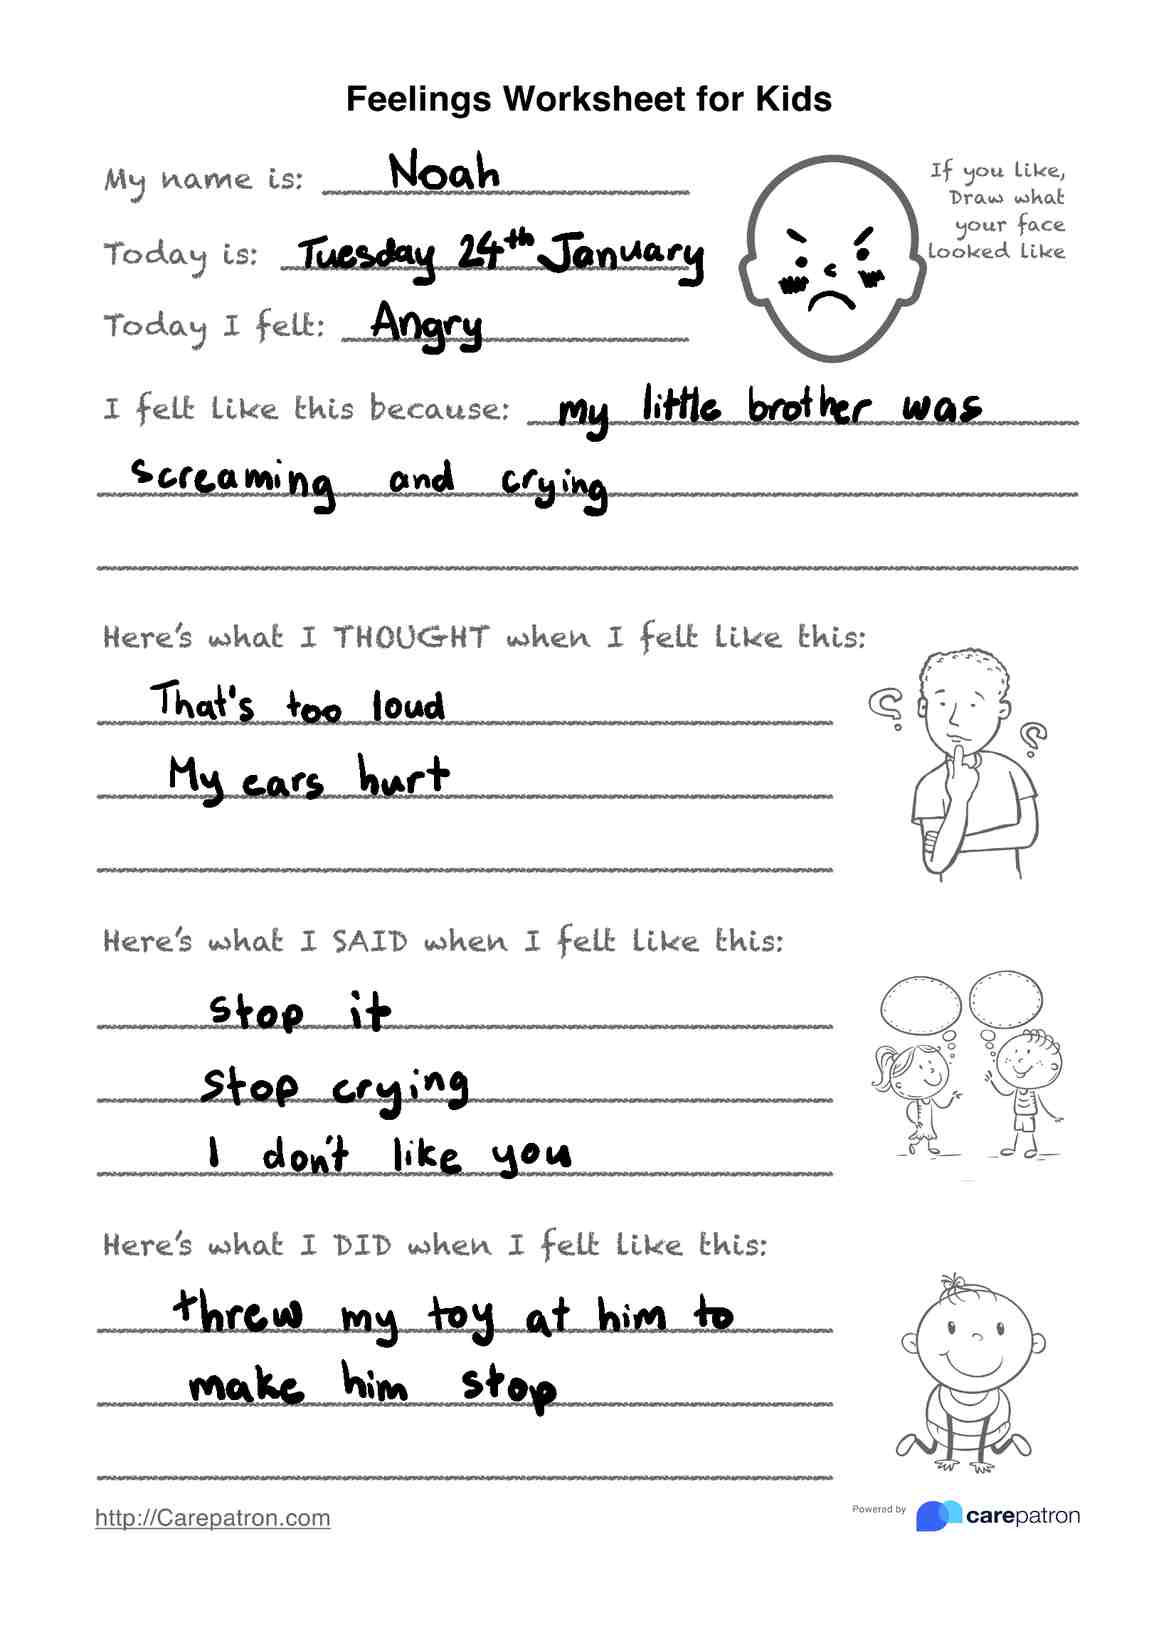 Feelings Worksheet for Kids
My name is: Noah
If you like,
Draw what
your face
looked like
Today is: Tuesday 24th January
Today I felt: Angry
I felt like this because: my little brother was
screaming and crying
Here's what I THOUGHT when I felt like this:
That's too loud
My ears hurt
Here's what I SAID when I felt like this:
stop it
stop crying
I don't like you
Here's what I DID when I felt like this:
threw my toy at him to
make him stop
http://Carepatron.com
Powered by carepatron